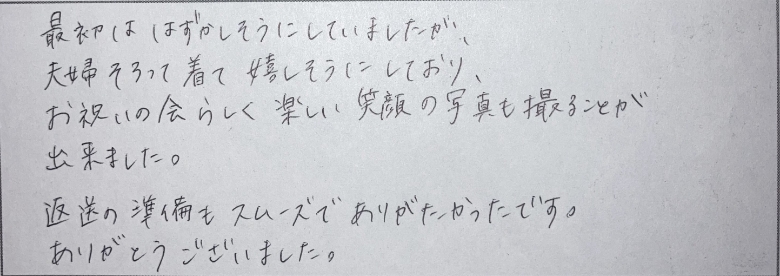 最初は はずかしそうにしていましたが、
夫婦そろって着て嬉しそうにしており、
お祝いの会らしく楽しい笑顔の写真も撮ることが
出来ました。
返送の準備もスムーズでありがたかったです。
ありがとうございました。